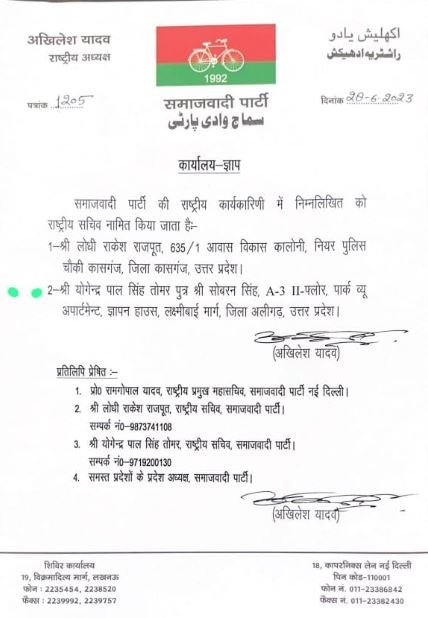 अखिलेश यादव
राष्ट्रीय अध्यक्ष
اکھلیش یادو
راشٹریہ ادھیکش
1992
पत्रांक ..1205
समाजवादी पार्टी
سماج وادی پارٹی
दिनांक 28-6-2023
कार्यालय–ज्ञाप
समाजवादी पार्टी की राष्ट्रीय कार्यकारिणी में निम्नलिखित को
राष्ट्रीय सचिव नामित किया जाता है:-
1–श्री लोधी राकेश राजपूत, 635/1 आवास विकास कालोनी, नियर पुलिस
चौकी कासगंज, जिला कासगंज, उत्तर प्रदेश।
2–श्री योगेन्द्र पाल सिंह तोमर पुत्र श्री सोबरन सिंह, A-3 II-फ्लोर, पार्क व्यू
अपार्टमेन्ट, ज्ञापन हाउस, लक्ष्मीबाई मार्ग, जिला अलीगढ़, उत्तर प्रदेश।
(अखिलेश यादव)
प्रतिलिपि प्रेषित :–
1. प्रो0 रामगोपाल यादव, राष्ट्रीय प्रमुख महासचिव, समाजवादी पार्टी नई दिल्ली।
2. श्री लोधी राकेश राजपूत, राष्ट्रीय सचिव, समाजवादी पार्टी।
सम्पर्क नं0–9873741108
3. श्री योगेन्द्र पाल सिंह तोमर, राष्ट्रीय सचिव, समाजवादी पार्टी।
सम्पर्क नं0–9719200130
4. समस्त प्रदेशों के प्रदेश अध्यक्ष, समाजवादी पार्टी।
(अखिलेश यादव)
शिविर कार्यालय
19, विक्रमादित्य मार्ग, लखनऊ
फोन : 2235454, 2238520
फैक्स : 2239992, 2239757
18, कापरनिक्स लेन नई दिल्ली
पिन कोड-110001
फोन नं. 011-23386842
फैक्स नं. 011-23382430